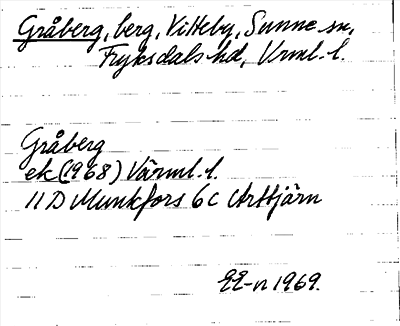 Gråberg, berg, Vitteby, Sunne sn,
Fryksdals hd, Vrml. l.
Gråberg
ek (1968) Värml. l.
11 D Munkfors 6 c Arttjärn
1969.